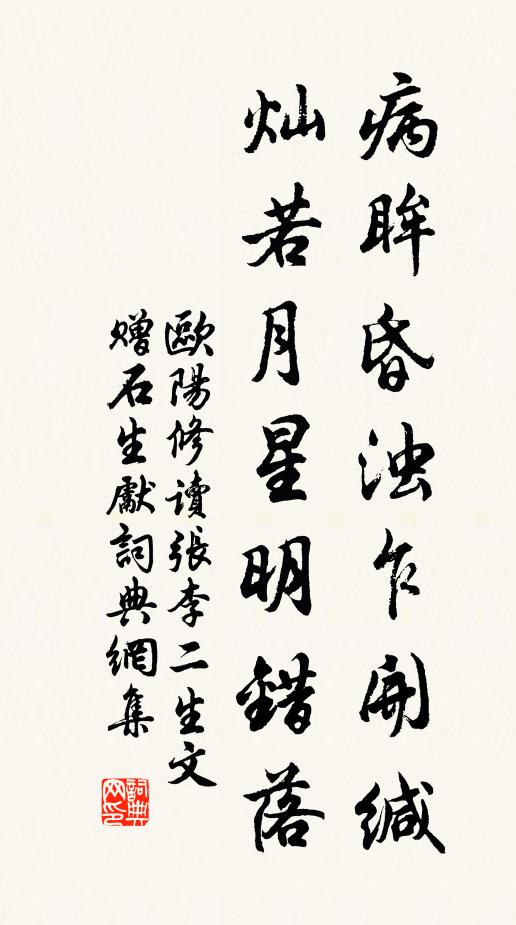 病眸昏浊乍開缄
灿若月星明錯落
歐陽修讀張李二生文
赠石生獻詞典網集
詞典
网印